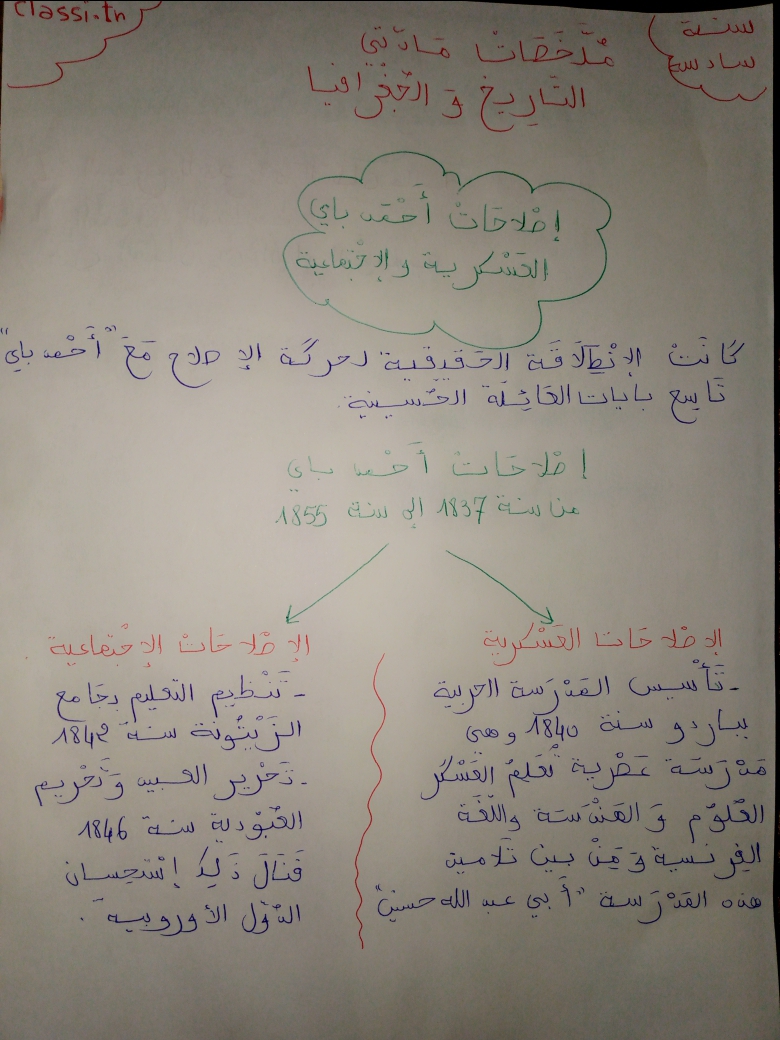 classi.tn
سنة
سادسة
مُلَخَّصَاتْ مَادّتي
التَارِيخْ وَ الجُغْرافيا
إصْلاحَاتْ أَحْمَد باي
العَسْكرية والإجْتماعية
كَانَتْ الإنْطِلَاقَة الحَقيقِية لحركَة الإصلاح مَعَ "أَحْمد باي"
تَاسِع بايات العَائِلَة الحُسينية.
إصْلاحَات أَحْمد باي
من سنة 1837 إلى سنة 1855
الإصْلاحَات العَسْكرية
- تَأْسيس المَدْرَسة الحربية
بباردو سنة 1840 وهي
مَدْرَسَة عَصْرية تُعَلمُ العَسْكَر
العُلُوم وَ الهَنْدَسَة واللّغَة
الفِرنسية وَمِنْ بين تَلاميذ
هذه المَدْرَسة "أَبي عبد الله حسين"
الإصْلاحَاتْ الإجْتماعية
- تَنْظيم التعليم بجَامع
الزَيْتُونة سنة 1842
- تَحْرير العبيد وَتَحْريم
العُبُودية سنة 1846
فَنَالَ ذَلِكَ إسْتحسان
الدُوَل الأوروبية.